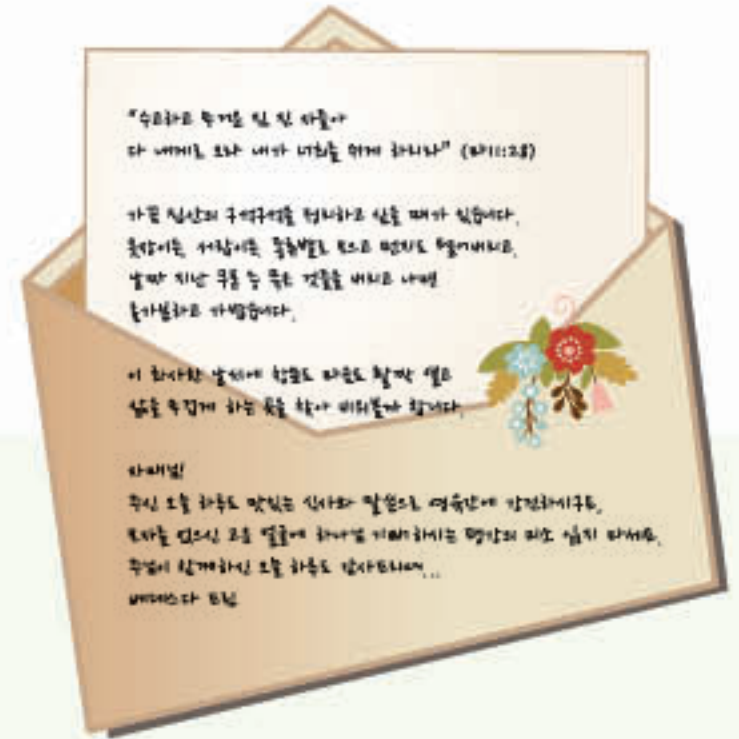 "수고하고 무거운 짐 진 자들아
다 내게로 오라 내가 너희를 쉬게 하리라" (마11:28)
가끔 집안의 구석구석을 정리하고 싶을 때가 있습니다.
옷장이든, 서랍이든, 종류별로 모으고 먼지도 털어버리고,
날짜 지난 쿠폰 등 묵은 것들을 버리고 나면
홀가분하고 가볍습니다.
이 화사한 날씨에 창문도 마음도 활짝 열고
삶을 무겁게 하는 것을 찾아 비워볼까 합니다.
자매님!
주신 오늘 하루도 맛있는 식사와 말씀으로 영육간에 강건하시구요,
모자를 쓰신 고운 얼굴에 하나님 기뻐하시는 평강의 미소 잃지 마세요.
주님이 함께하신 오늘 하루도 감사드리며...
베데스다 드림